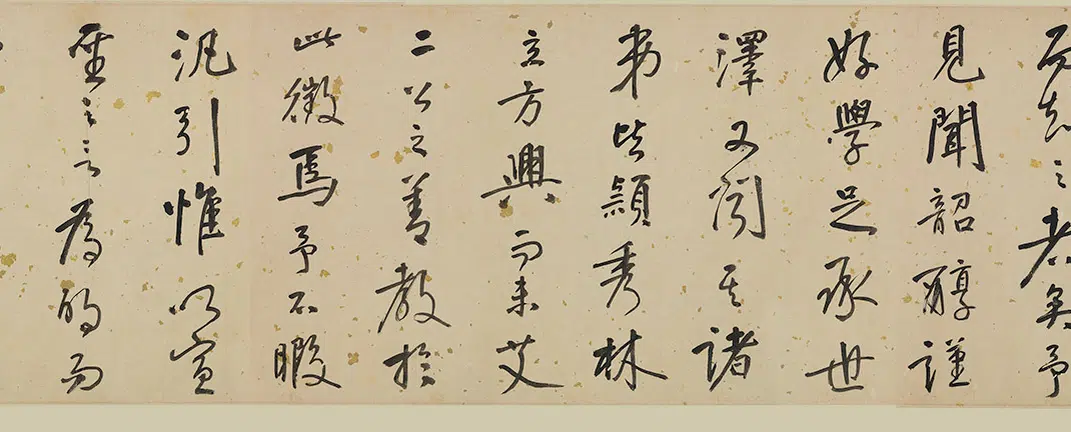 而知之者矣予
見聞韶醇謹
好學足承世
澤又聞其諸
弟皆穎秀林
立方興而未艾
二公之善教於
此徵焉予不暇
汎引惟以宣
聖之言為的而